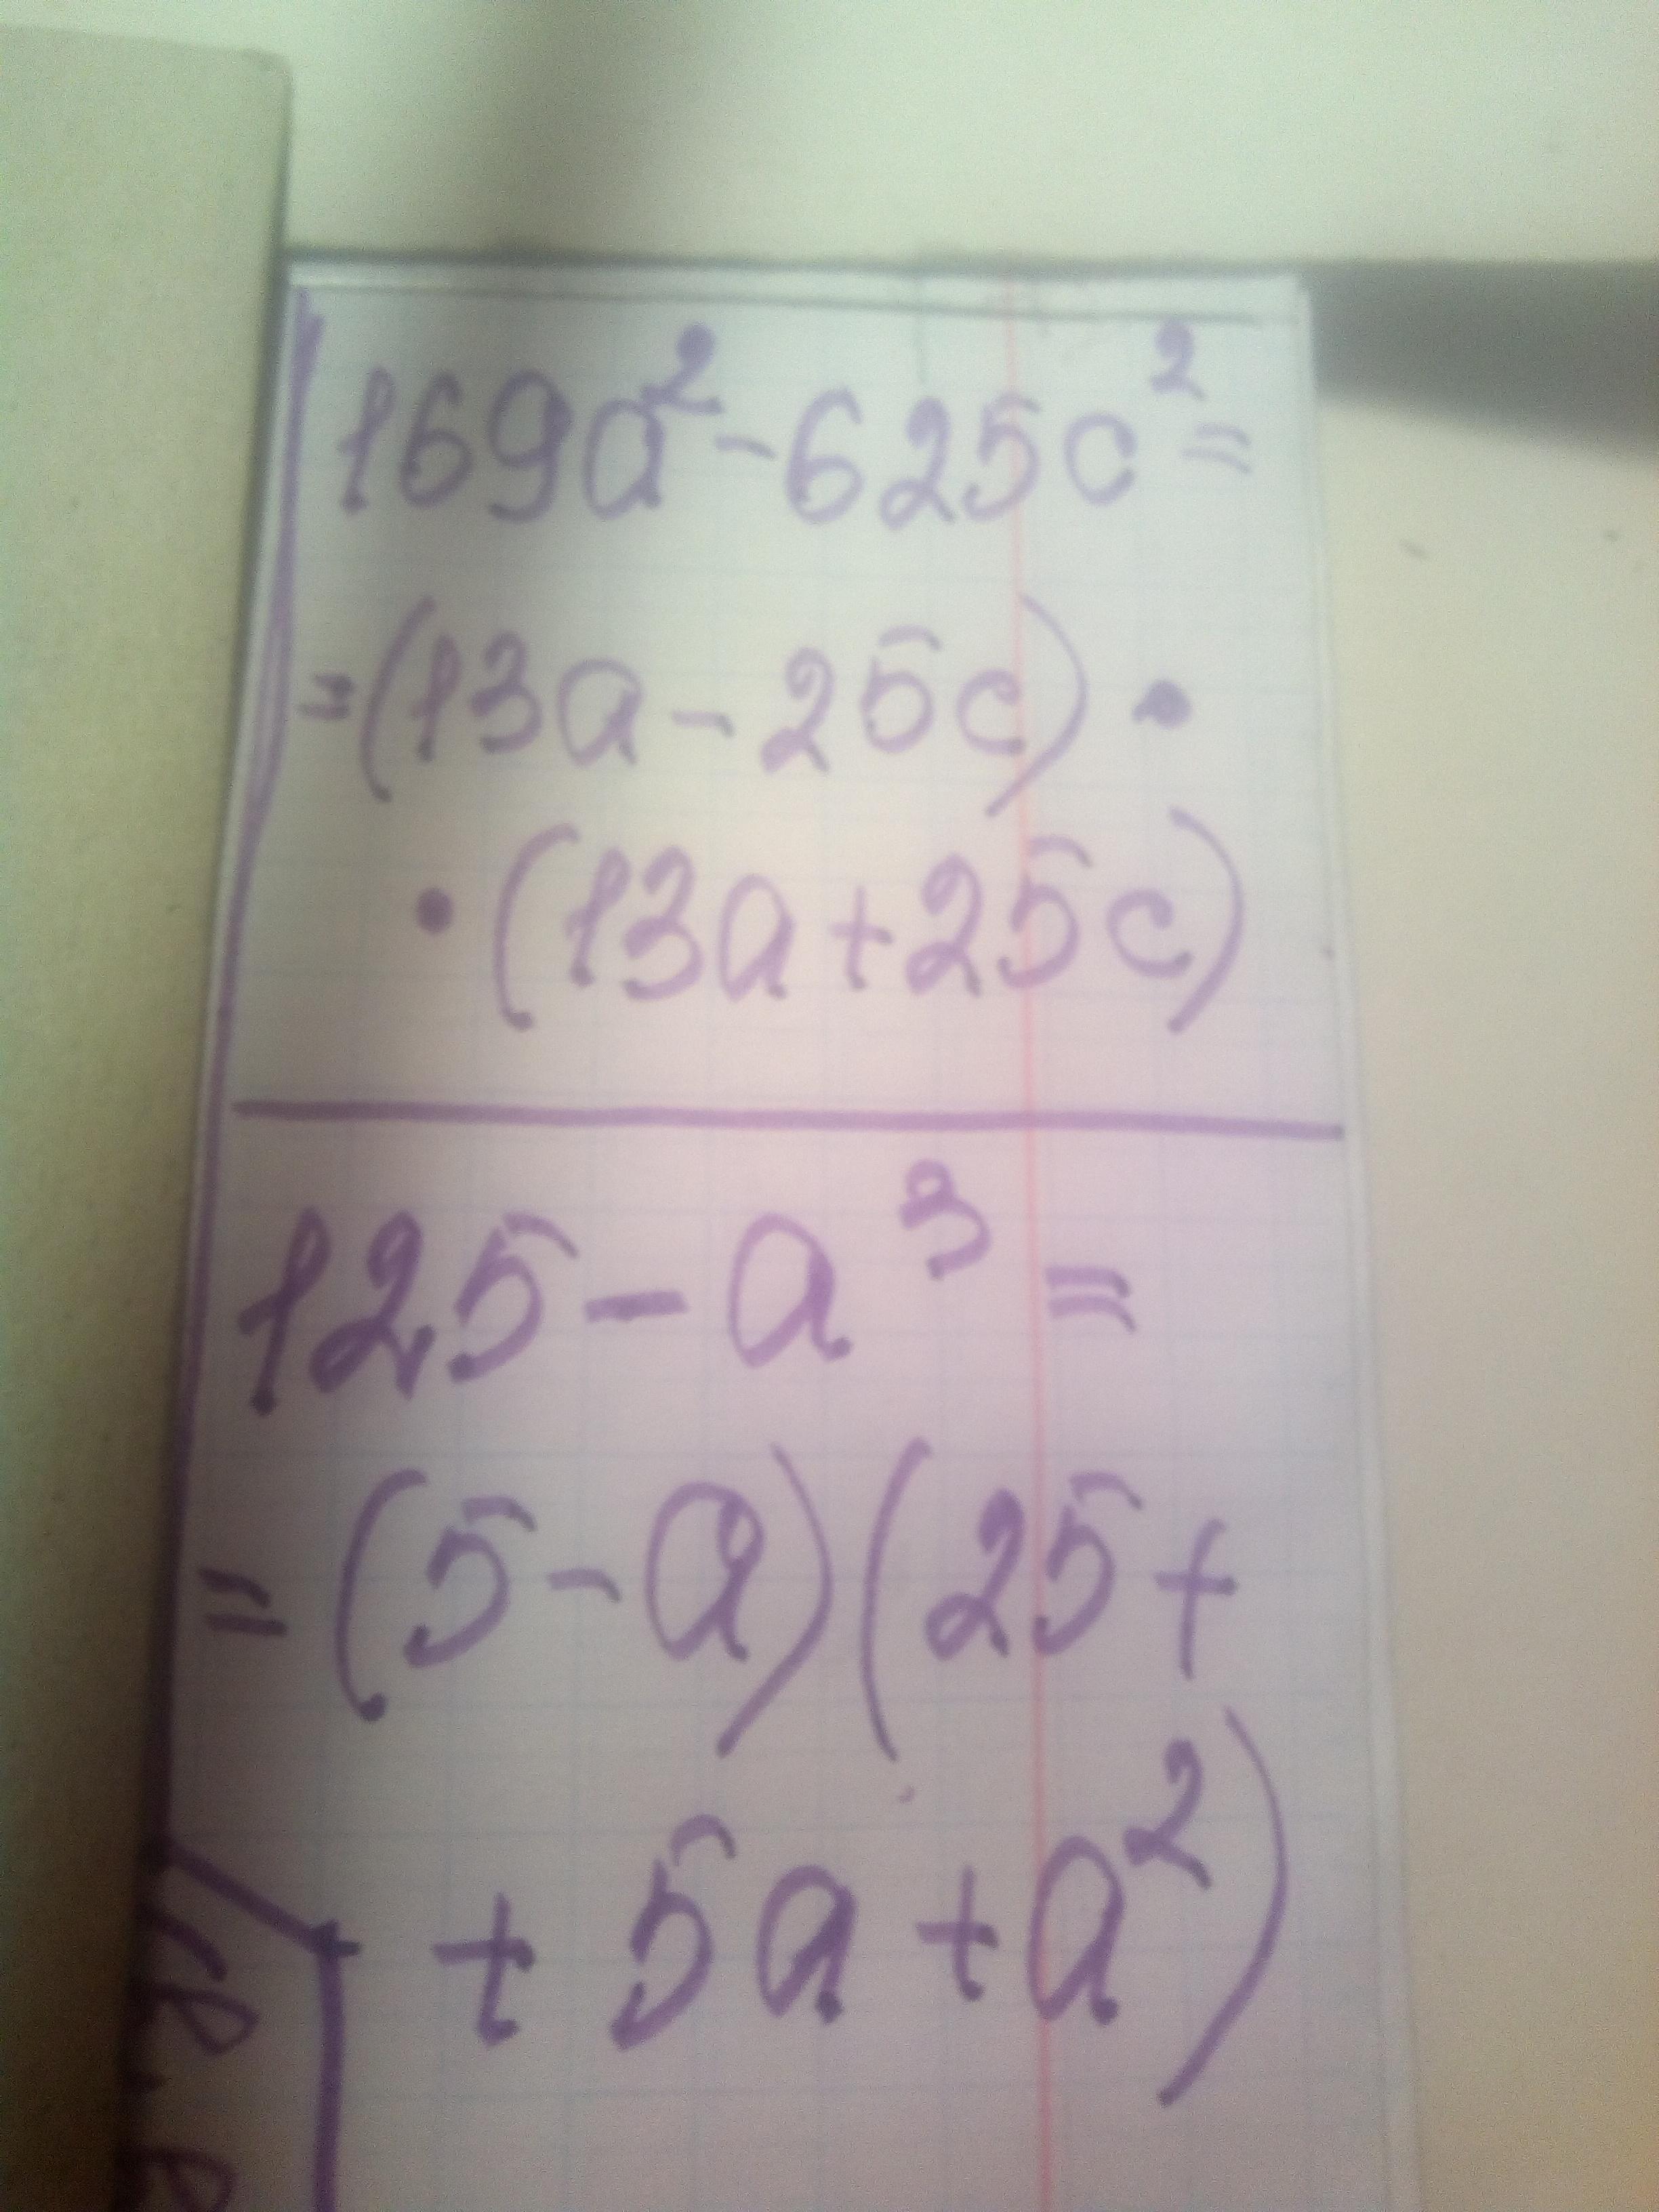 169a²-625c²=
=(13a-25c)•
•(13a+25c)
125-a³=
=(5-a)(25+
+5a+a²)